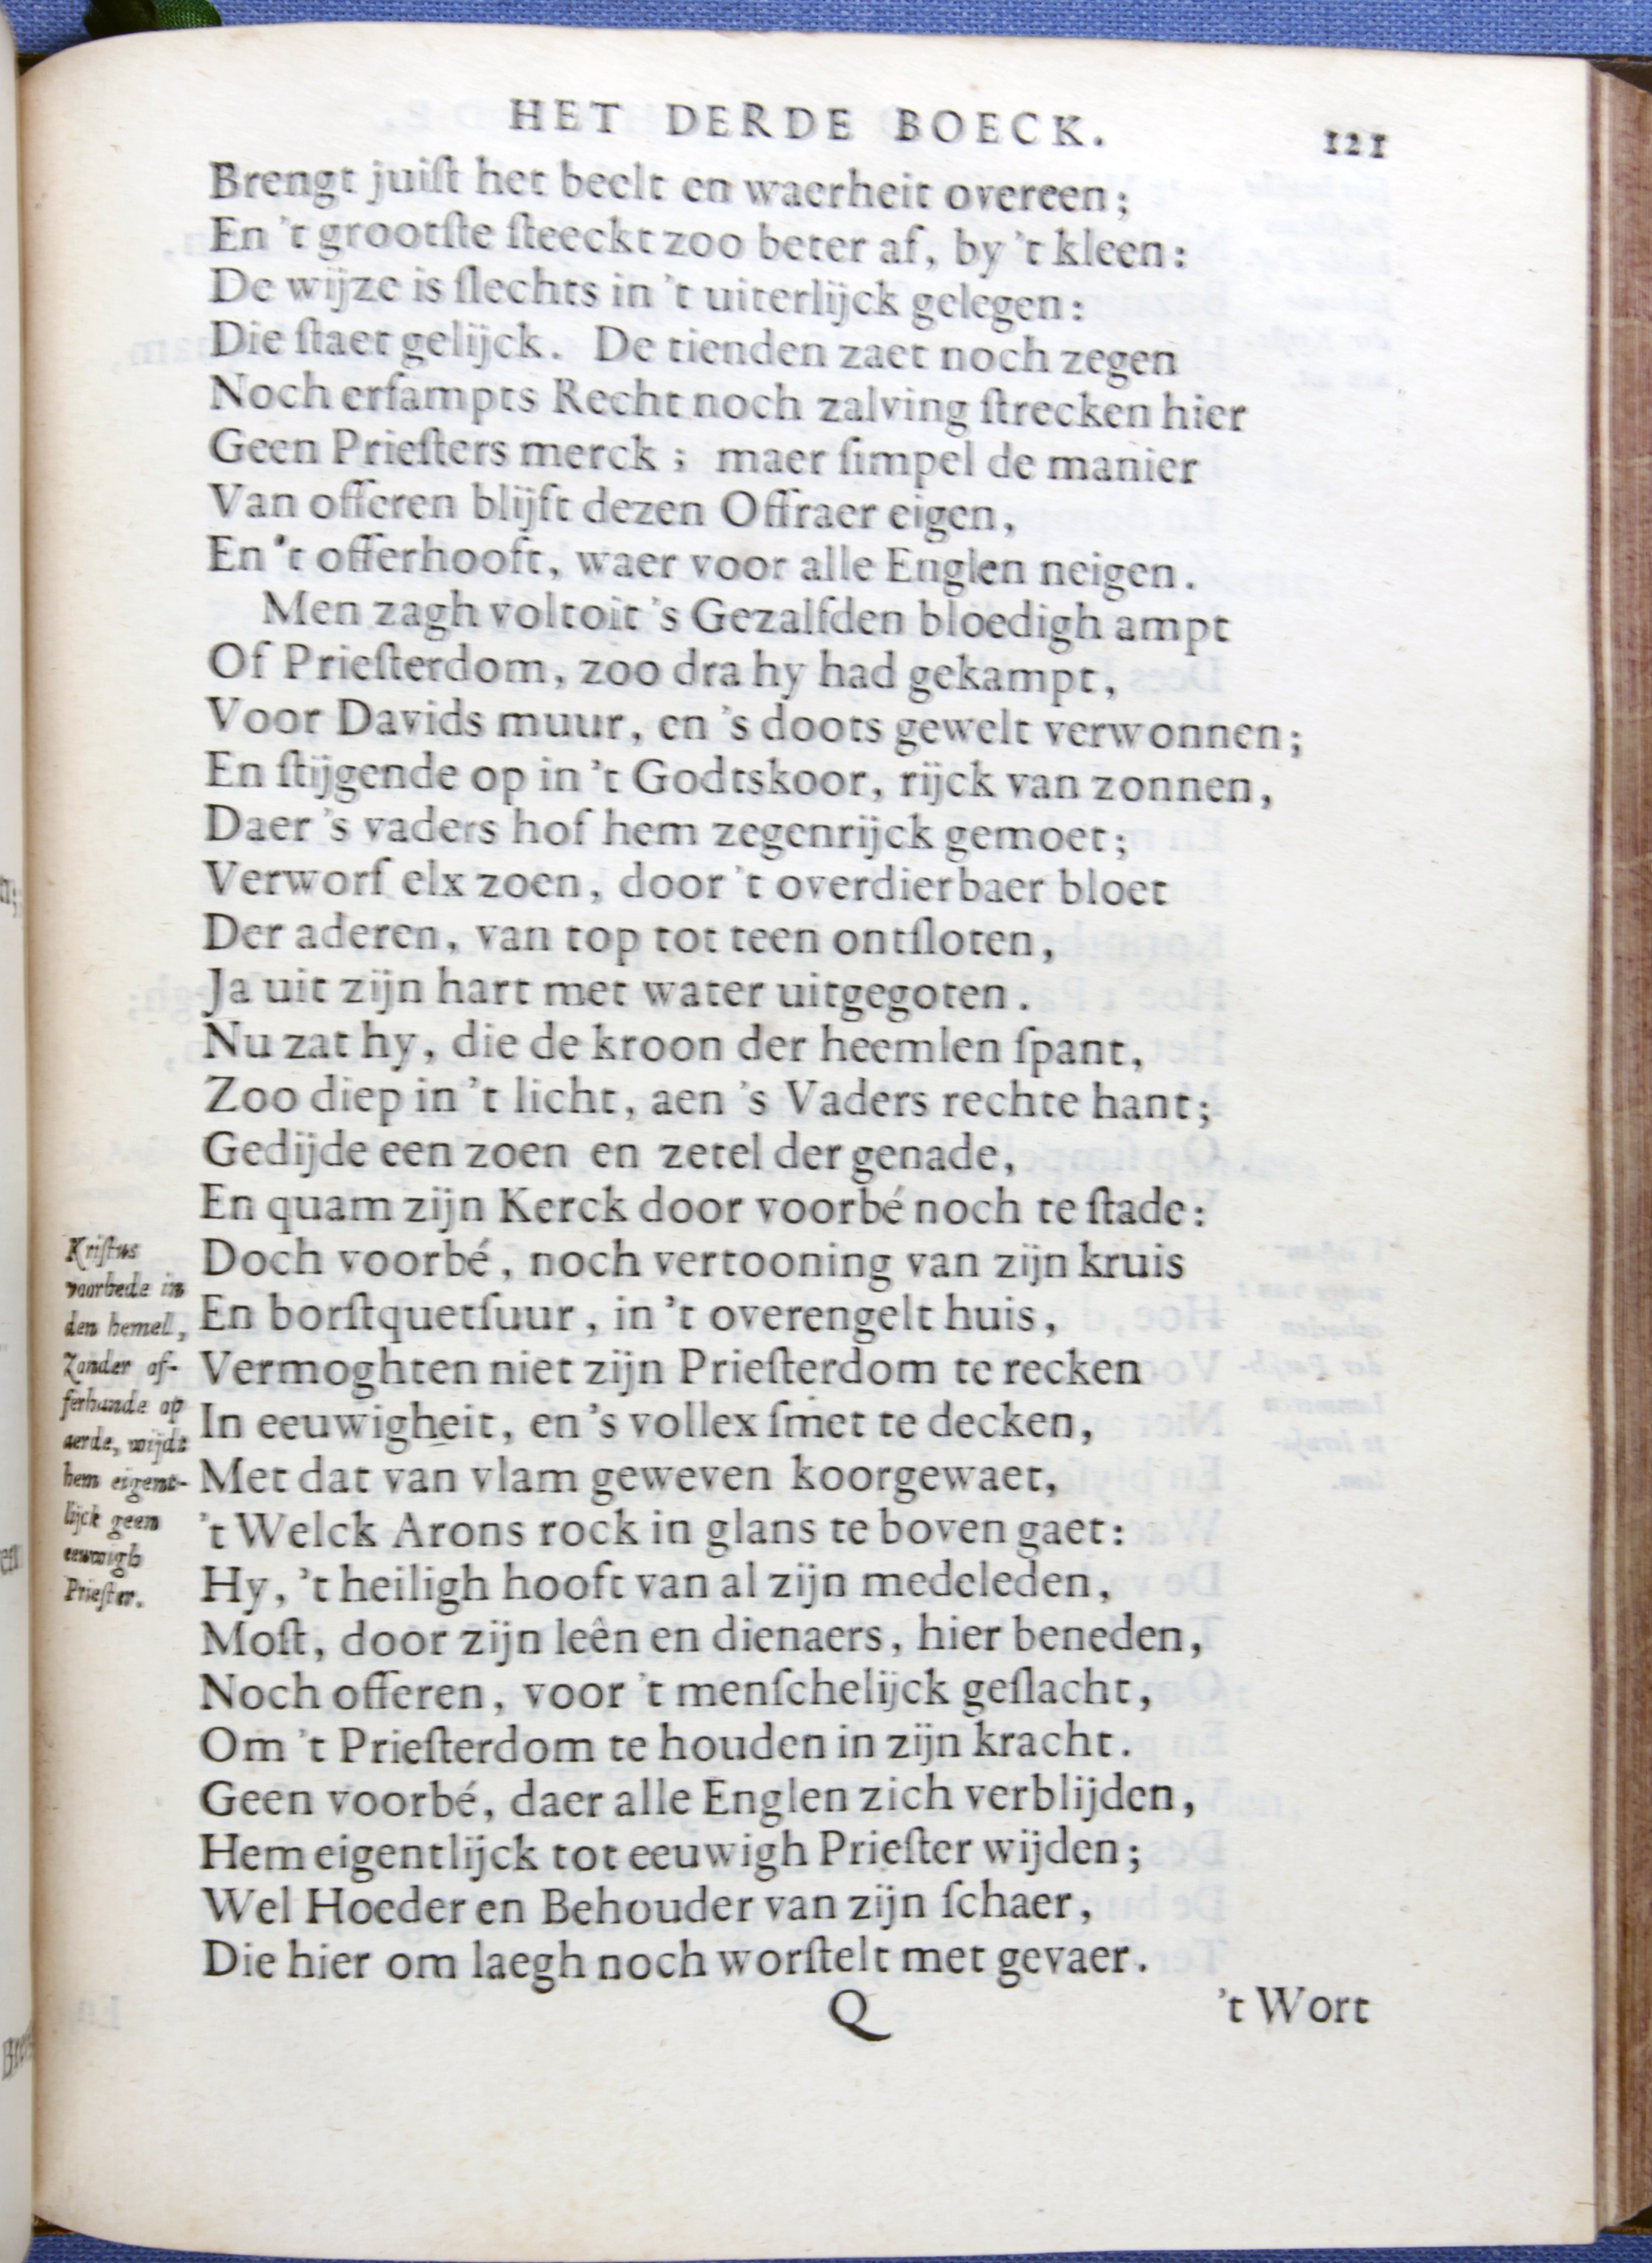 HET DERDE BOECK. 121
Brengt juiſt het beelt en waerheit overeen;
En 't grootſte ſteeckt zoo beter af, by 't kleen:
De wijze is ſlechts in 't uiterlijck gelegen:
Die ſtaet gelijck. De tienden zaet noch zegen
Noch erfampts Recht noch zalving ſtrecken hier
Geen Prieſters merck; maer ſimpel de manier
Van offeren blijft dezen Offraer eigen,
En 't offerhooft, waer voor alle Englen neigen.
Men zagh voltoit 's Gezalfden bloedigh ampt
Of Prieſterdom, zoo dra hy had gekampt,
Voor Davids muur, en 's doots gewelt verwonnen;
En ſtijgende op in 't Godtskoor, rijck van zonnen,
Daer 's vaders hof hem zegenrijck gemoet;
Verworf elx zoen, door 't overdierbaer bloet
Der aderen, van top tot teen ontſloten,
Ja uit zijn hart met water uitgegoten.
Nu zat hy, die de kroon der heemlen ſpant,
Zoo diep in 't licht, aen 's Vaders rechte hant;
Gedijde een zoen en zetel der genade,
En quam zijn Kerck door voorbé noch te ſtade:
Doch voorbé, noch vertooning van zijn kruis
En borſtquetſuur, in 't overengelt huis,
Vermoghten niet zijn Prieſterdom te recken
In eeuwigheit, en 's vollex ſmet te decken,
Met dat van vlam geweven koorgewaet,
't Welck Arons rock in glans te boven gaet:
Hy, 't heiligh hooft van al zijn medeleden,
Moſt, door zijn leên en dienaers, hier beneden,
Noch offeren, voor 't menſchelijck geſlacht,
Om 't Prieſterdom te houden in zijn kracht.
Geen voorbé, daer alle Englen zich verblijden,
Hem eigentlijck tot eeuwigh Prieſter wijden;
Wel Hoeder en Behouder van zijn ſchaer,
Die hier om laegh noch worſtelt met gevaer.
Kriſtus
voorbede in
den hemel,
Zonder of-
ferhande op
aerde, wijdt
hem eigent-
lijck geen
eeuwigh
Prieſter.
Q 't Wort